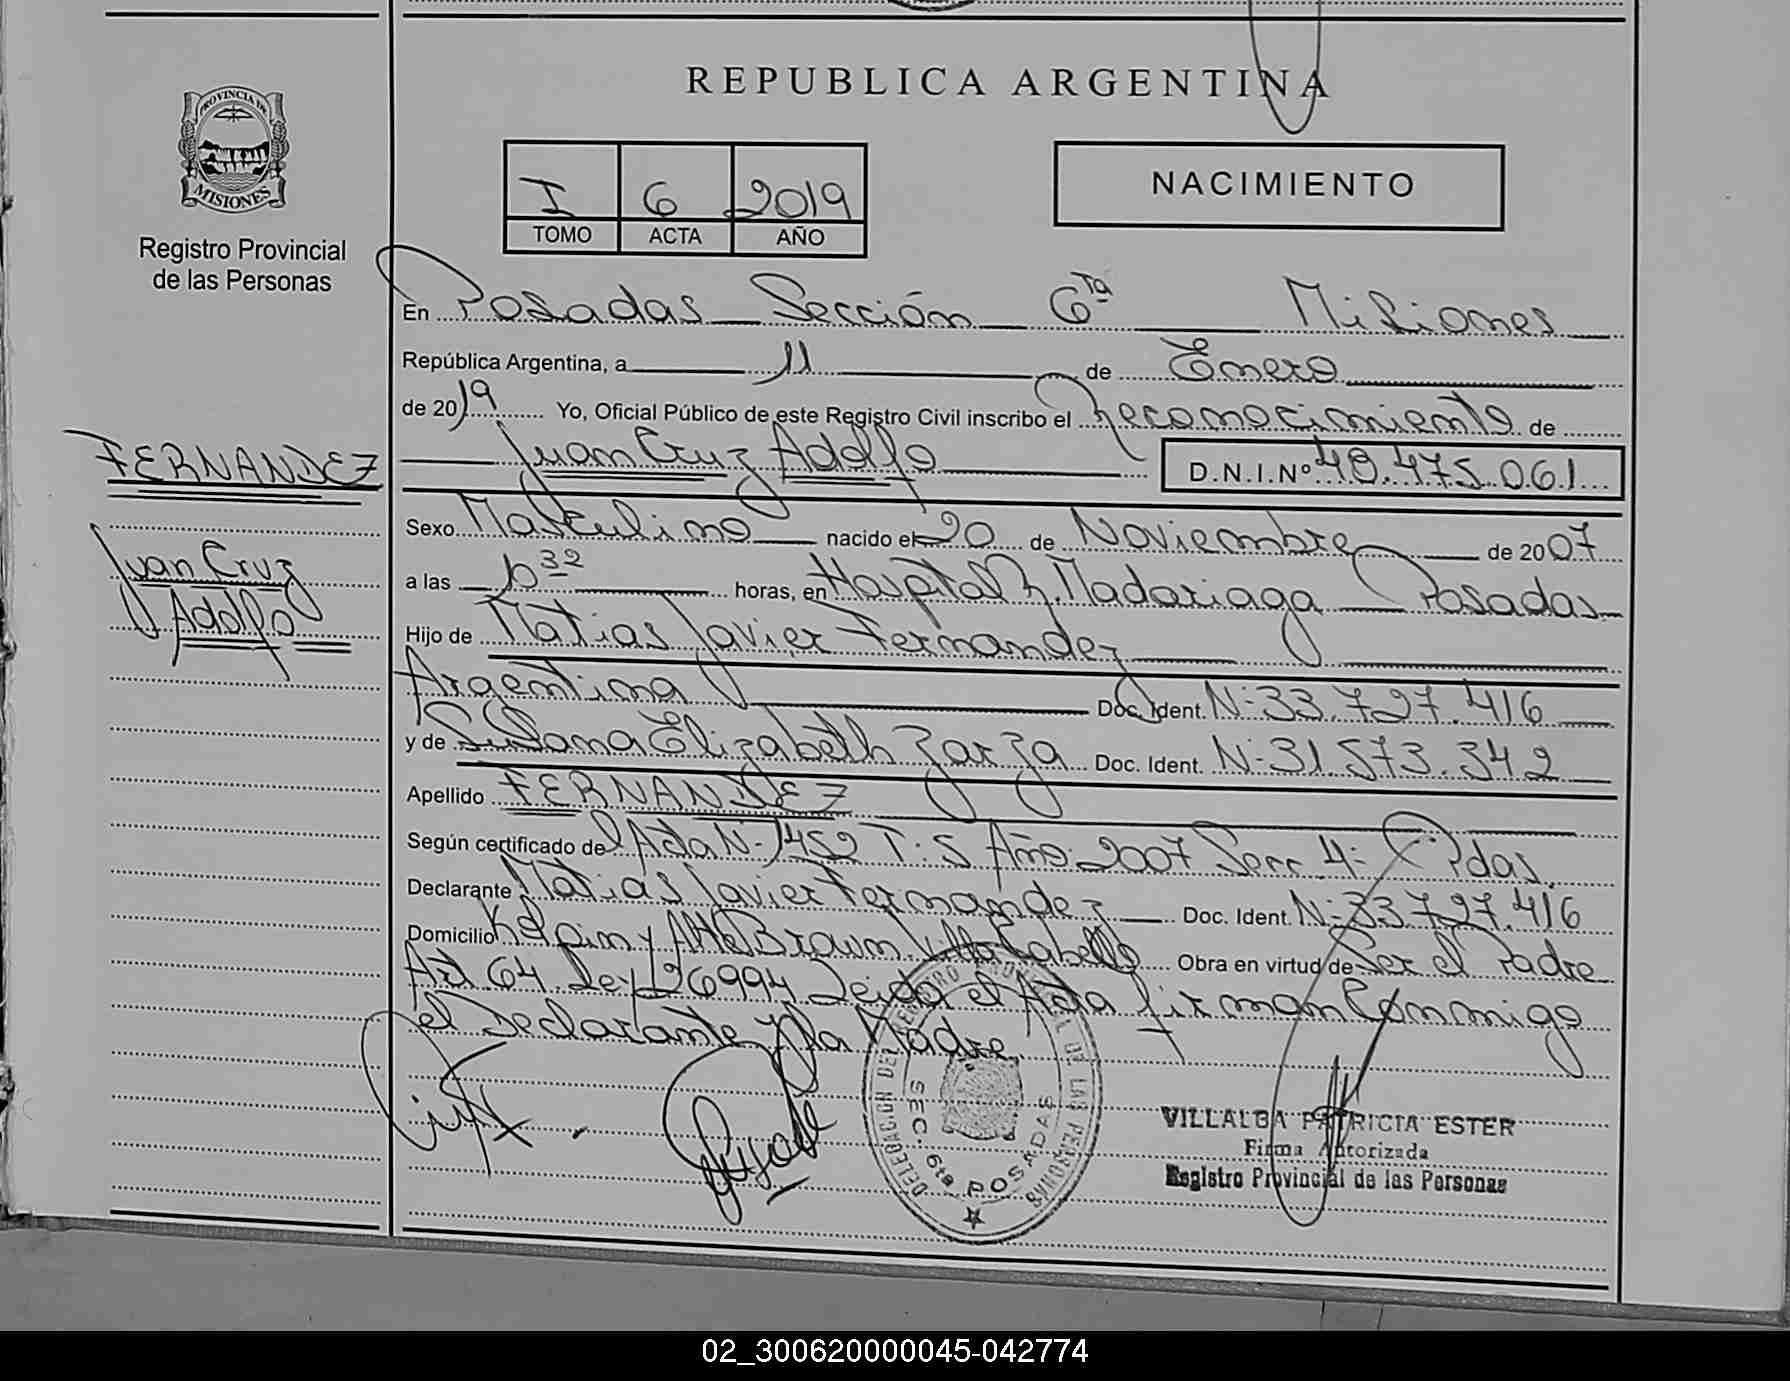 REPUBLICA ARGENTINA
PROVINCIA DE
MISIONES
Registro Provincial
de las Personas
I 6 2019
TOMO ACTA AÑO
NACIMIENTO
En Posadas Sección 6ta Misiones
República Argentina, a 11 de Enero
de 2019 Yo, Oficial Público de este Registro Civil inscribo el Reconocimiento de
Juan Cruz Adolfo D.N.I.Nº 48.475.061
FERNANDEZ
Juan Cruz
Adolfo
Sexo Masculino nacido el 20 de Noviembre de 2007
a las horas, en Hospital R. Madariaga Posadas
Hijo de Matias Javier Fernandez
Argentina Doc. Ident. N-33.727.416
y de Susana Elizabeth Zarza Doc. Ident. N-31.573.342
Apellido FERNANDEZ
Según certificado del Acta N-1452 T:5 Año:2007 Secc. 4: Pdas.
Declarante Matias Javier Fernandez Doc. Ident. N-33.727.416
Domicilio y Brown Villa Cabello Obra en virtud de Ser el Padre
Art 64 Ley 26994 Leida el Acta firman Conmigo
el Declarante y la Madre.
DELEGACION DEL REGISTRO PROVINCIAL DE LAS PERSONAS
SEC. 6ta POSADAS
VILLALBA PATRICIA ESTER
Firma Autorizada
Registro Provincial de las Personas
02_300620000045-042774